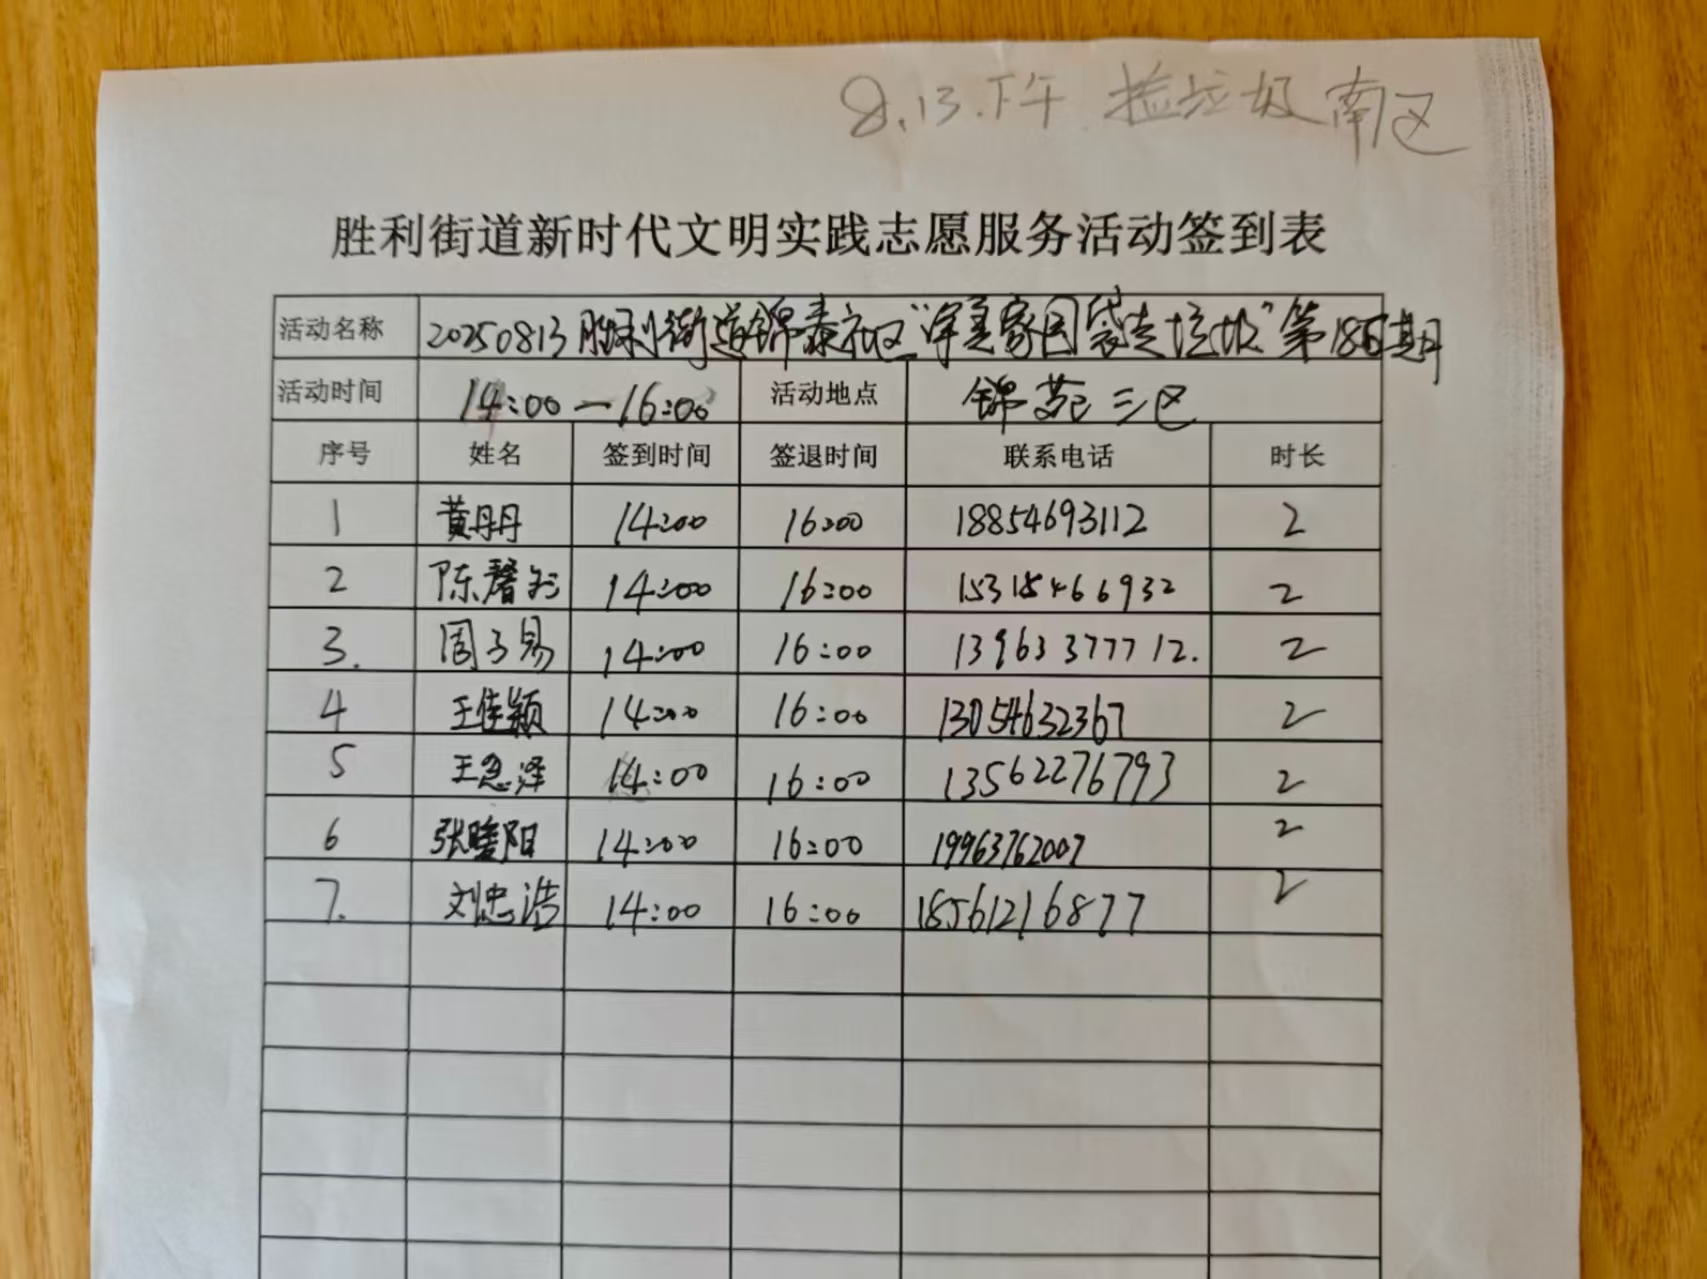 8.13.下午 捡垃圾 南区
胜利街道新时代文明实践志愿服务活动签到表
活动名称 20250813胜利街道锦泰社区“美家园袋走垃圾”第185期
活动时间 14:00—16:00 活动地点 锦苑三区
序号 姓名 签到时间 签退时间 联系电话 时长
1 黄丹丹 14:00 16:00 18854693112 2
2 陈馨 14:00 16:00 15315466932 2
3. 周子易 14:00 16:00 13963377712. 2
4 王佳颖 14:00 16:00 13054632367 2
5 王思泽 14:00 16:00 13562276793 2
6 张暖阳 14:00 16:00 19963762007 2
7. 刘忠浩 14:00 16:00 18561216877 2